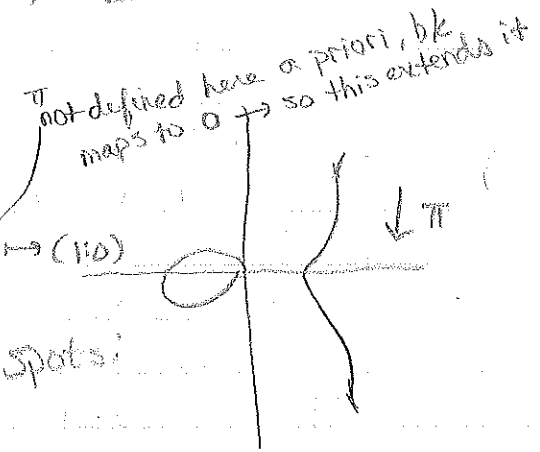 π not defined here a priori, bk
maps to 0 → so this extends it
↦ (1:0)
↓ π
spots: